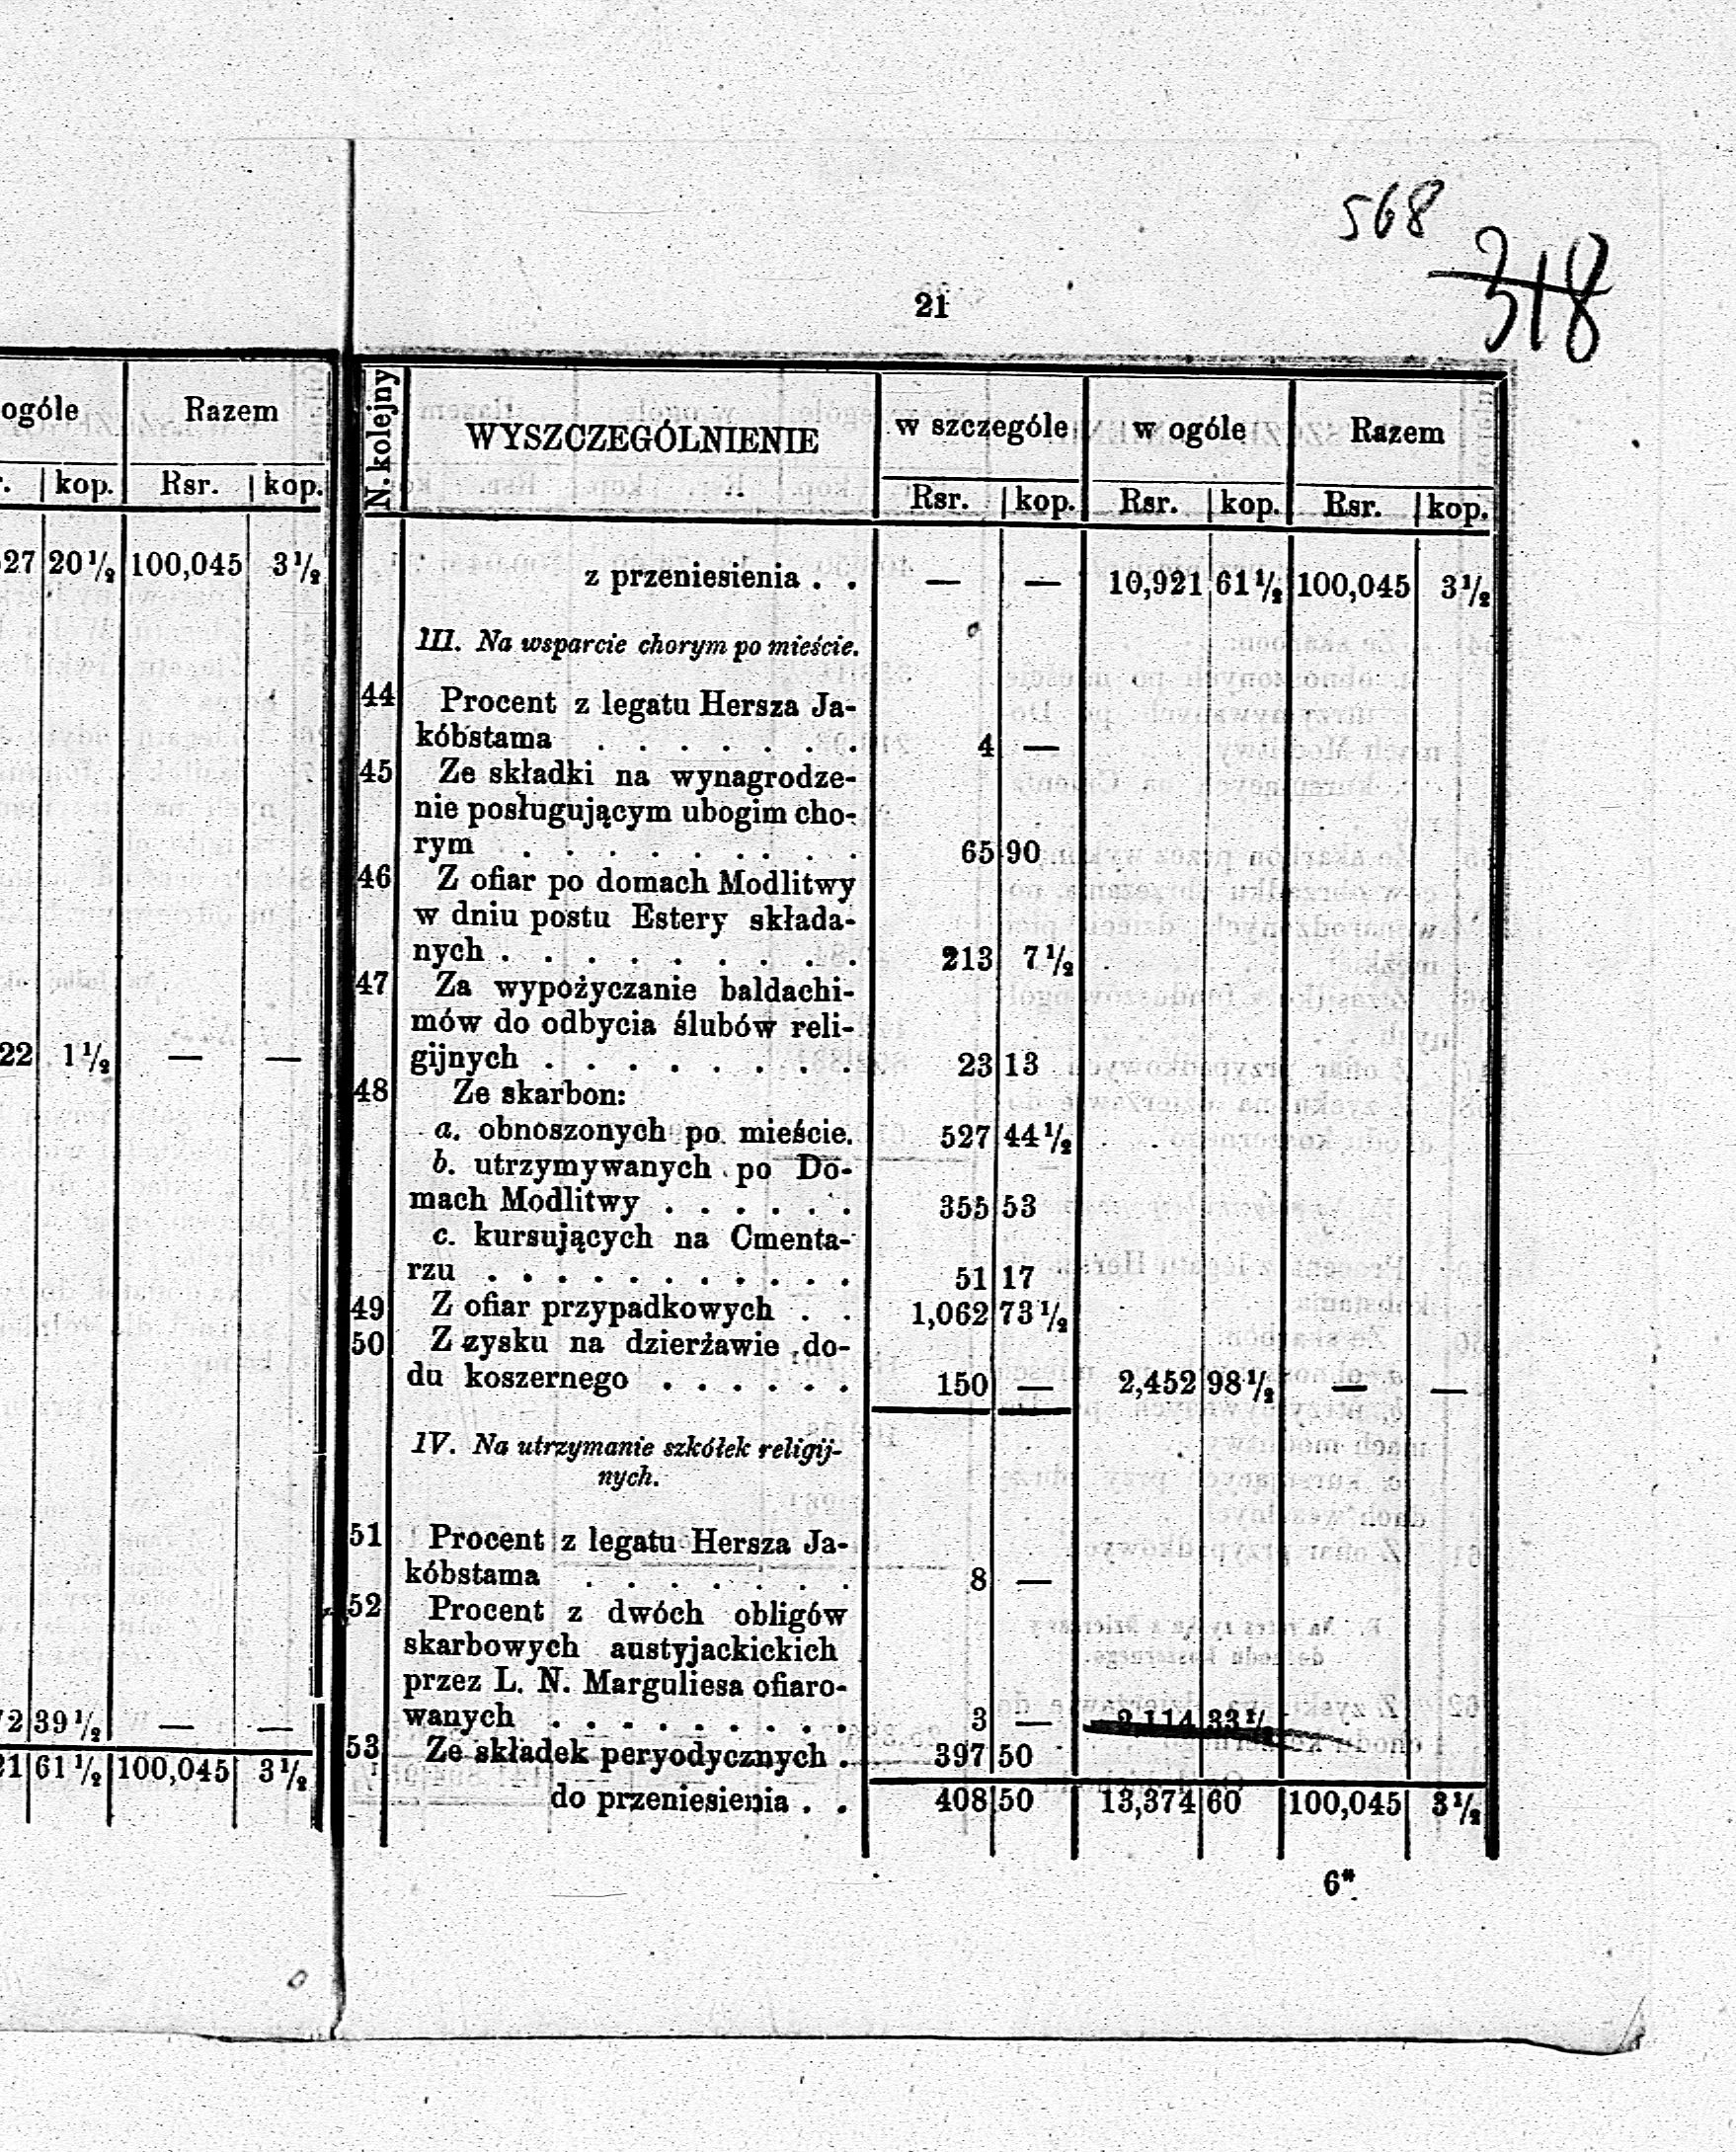 568
318
21
ogóle Razem
kop. Rsr. kop.
27 20½ 100,045 3½
22 1½ — —
72 39½ — —
21 61½ 100,045 3½
N. kolejny WYSZCZEGÓLNIENIE w szczególe w ogóle Razem
Rsr. kop. Rsr. kop. Rsr. kop.
z przeniesienia . . — — 10,921 61½ 100,045 3½
III. Na wsparcie chorym po mieście.
44 Procent z legatu Hersza Ja-
kóbstama . . . . . . . 4 —
45 Ze składki na wynagrodze-
nie posługującym ubogim cho-
rym . . . . . . . . . 65 90
46 Z ofiar po domach Modlitwy
w dniu postu Estery składa-
nych . . . . . . . . . 213 7½
47 Za wypożyczanie baldachi-
mów do odbycia ślubów reli-
gijnych . . . . . . . . 23 13
48 Ze skarbon:
a. obnoszonych po mieście. 527 44½
b. utrzymywanych po Do-
mach Modlitwy . . . . . . 355 53
c. kursujących na Cmenta-
rzu . . . . . . . . . . 51 17
49 Z ofiar przypadkowych . . 1,062 73½
50 Z zysku na dzierżawie do-
du koszernego . . . . . . 150 — 2,452 98½ — —
IV. Na utrzymanie szkółek religij-
nych.
51 Procent z legatu Hersza Ja-
kóbstama . . . . . . . 8 —
52 Procent z dwóch obligów
skarbowych austyjackickich
przez L. N. Marguliesa ofiaro-
wanych . . . . . . . . 3 — 2,114 33½
53 Ze składek peryodycznych . 397 50
do przeniesienia . . 408 50 13,374 60 100,045 3½
6*